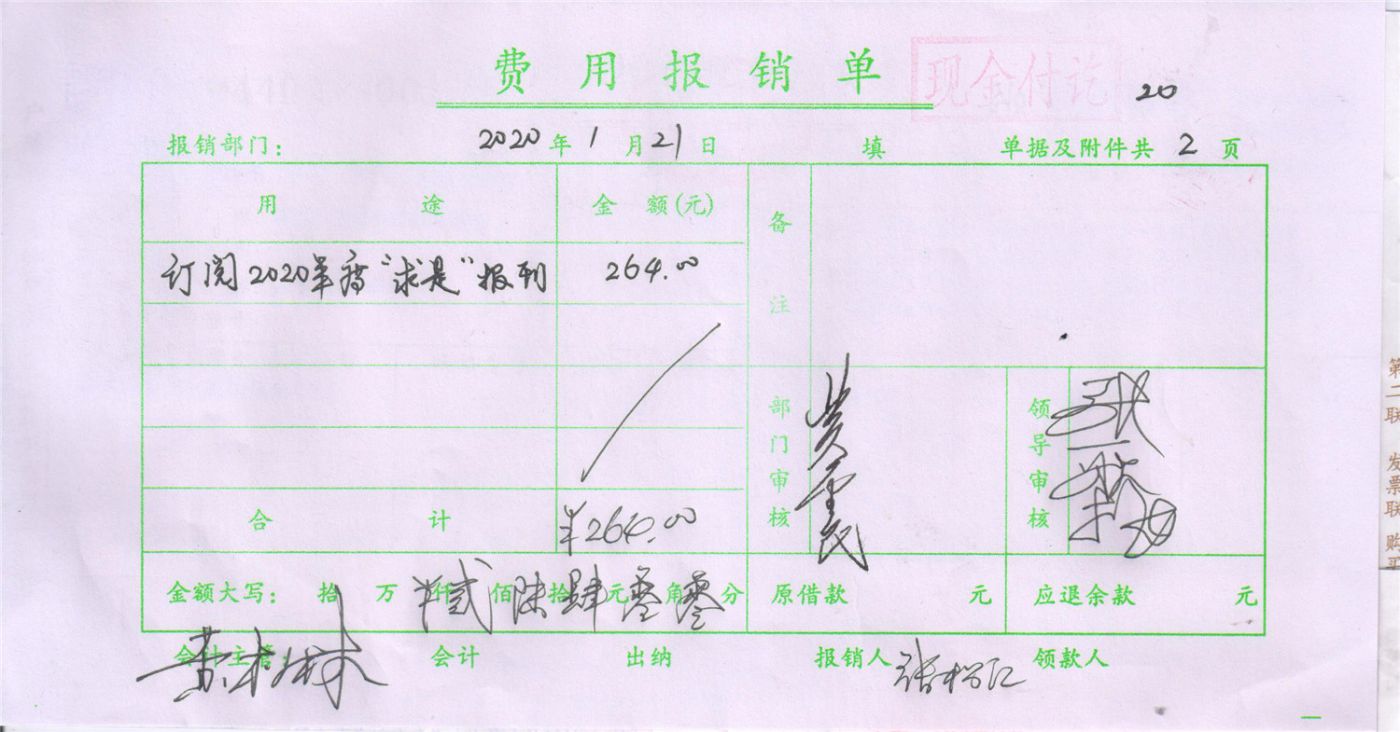 费用报销单
现金付讫
20
报销部门： 2020年1月21日 填 单据及附件共 2 页
用途 金额(元) 备注
订阅2020年度“求是”报刊 264.00
部门审核 领导审核
合计 ¥264.00
金额大写： 拾 万 仟 ¥贰佰 陆拾 肆元 零角 零分 原借款 元 应退余款 元
会计主管： 会计 出纳 报销人 张松江 领款人
第二联 发票联 购买